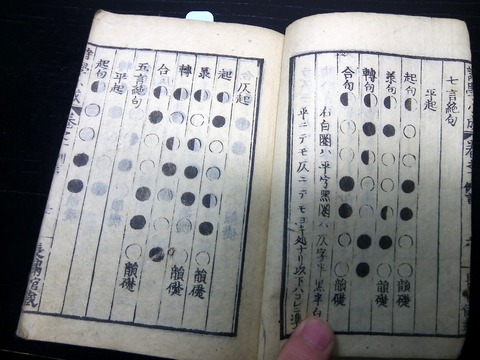 七言絶句
平起
起句 韻礎
承句 韻礎
轉句
合句 韻礎
右白圏ハ平字黒圏ハ仄字半黒半白ハ
平ニテモ仄ニテモヨキ処ナリ以下ハコレニ準
仄起
起
承 韻礎
轉
合 韻礎
五言絶句
平起
起句